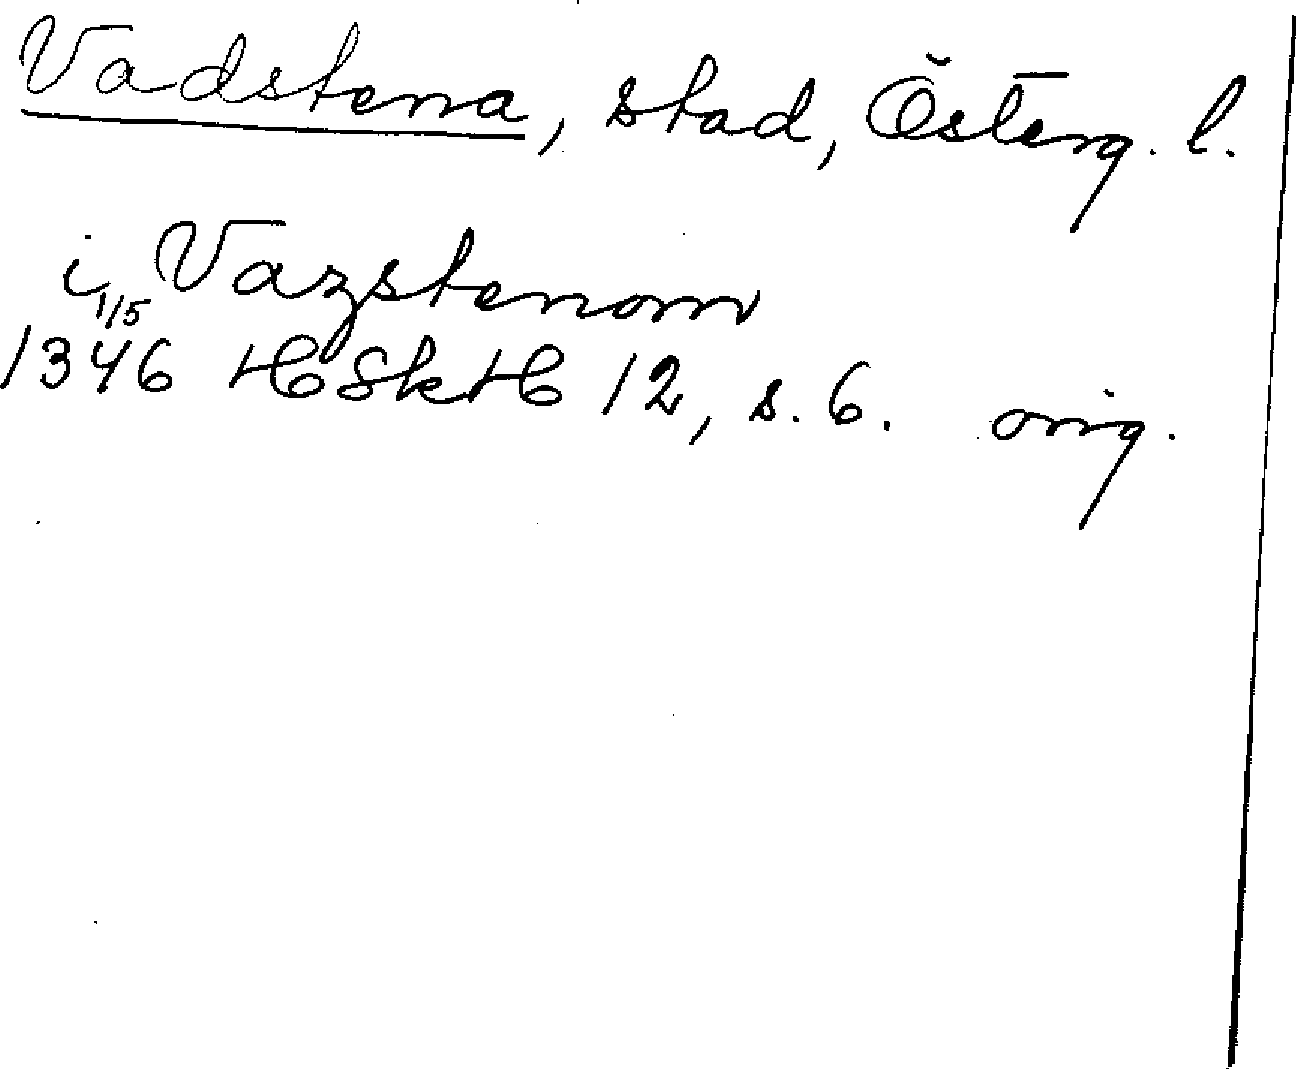 Vadstena, stad, Österg. l.
i Vazstenom
1/5
1346 HSkH 12, s. 6. orig.